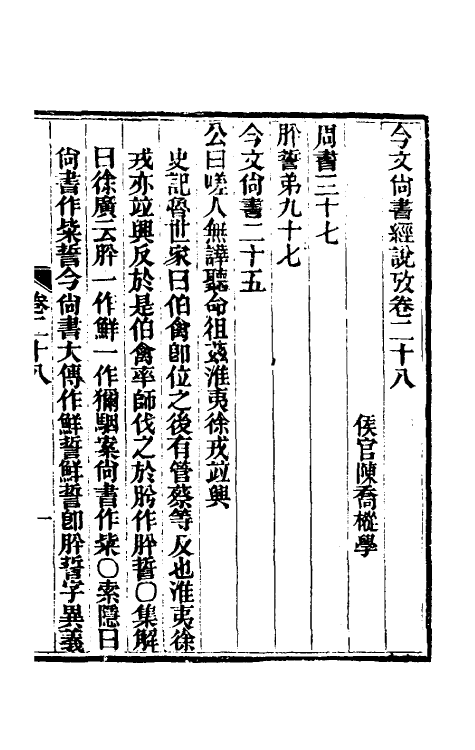 今文尙書經說攷卷二十八
侯官陳喬樅學
周書二十七
肸誓弟九十七
今文尙書二十五
公曰嗟人無譁聽命徂茲淮夷徐戎竝興
史記魯世家曰伯禽卽位之後有管蔡等反也淮夷徐
戎亦竝興反於是伯禽率師伐之於肸作肸誓○集解
曰徐廣云肸一作鮮一作獮駰案尙書作柴○索隱曰
尙書作柴誓今尙書大傳作鮮誓鮮誓卽肸誓字異義
卷二十八
一